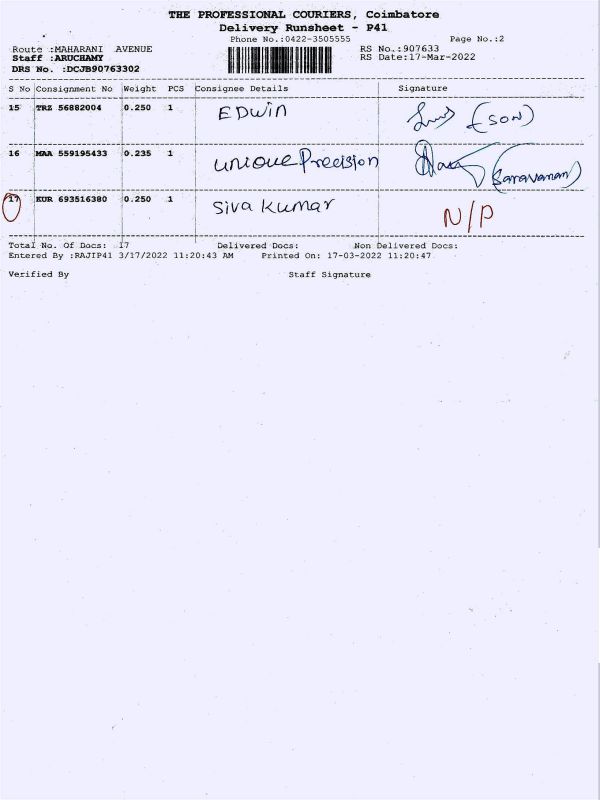 THE PROFESSIONAL COURIERS, Coimbatore
Delivery Runsheet - P41
Phone No.:0422-3505555 Page No.:2
Route :MAHARANI AVENUE RS No.:907633
Staff :ARUCHAMY RS Date:17-Mar-2022
DRS No. :DCJB90763302
S No Consignment No Weight PCS Consignee Details Signature
15 TRZ 56882004 0.250 1 EDwin (SON)
16 MAA 559195433 0.235 1 unique Precision (Saravanan)
17 KUR 693516380 0.250 1 Siva Kumar N/P
Total No. Of Docs: 17 Delivered Docs: Non Delivered Docs:
Entered By :RAJIP41 3/17/2022 11:20:43 AM Printed On: 17-03-2022 11:20:47
Verified By Staff Signature